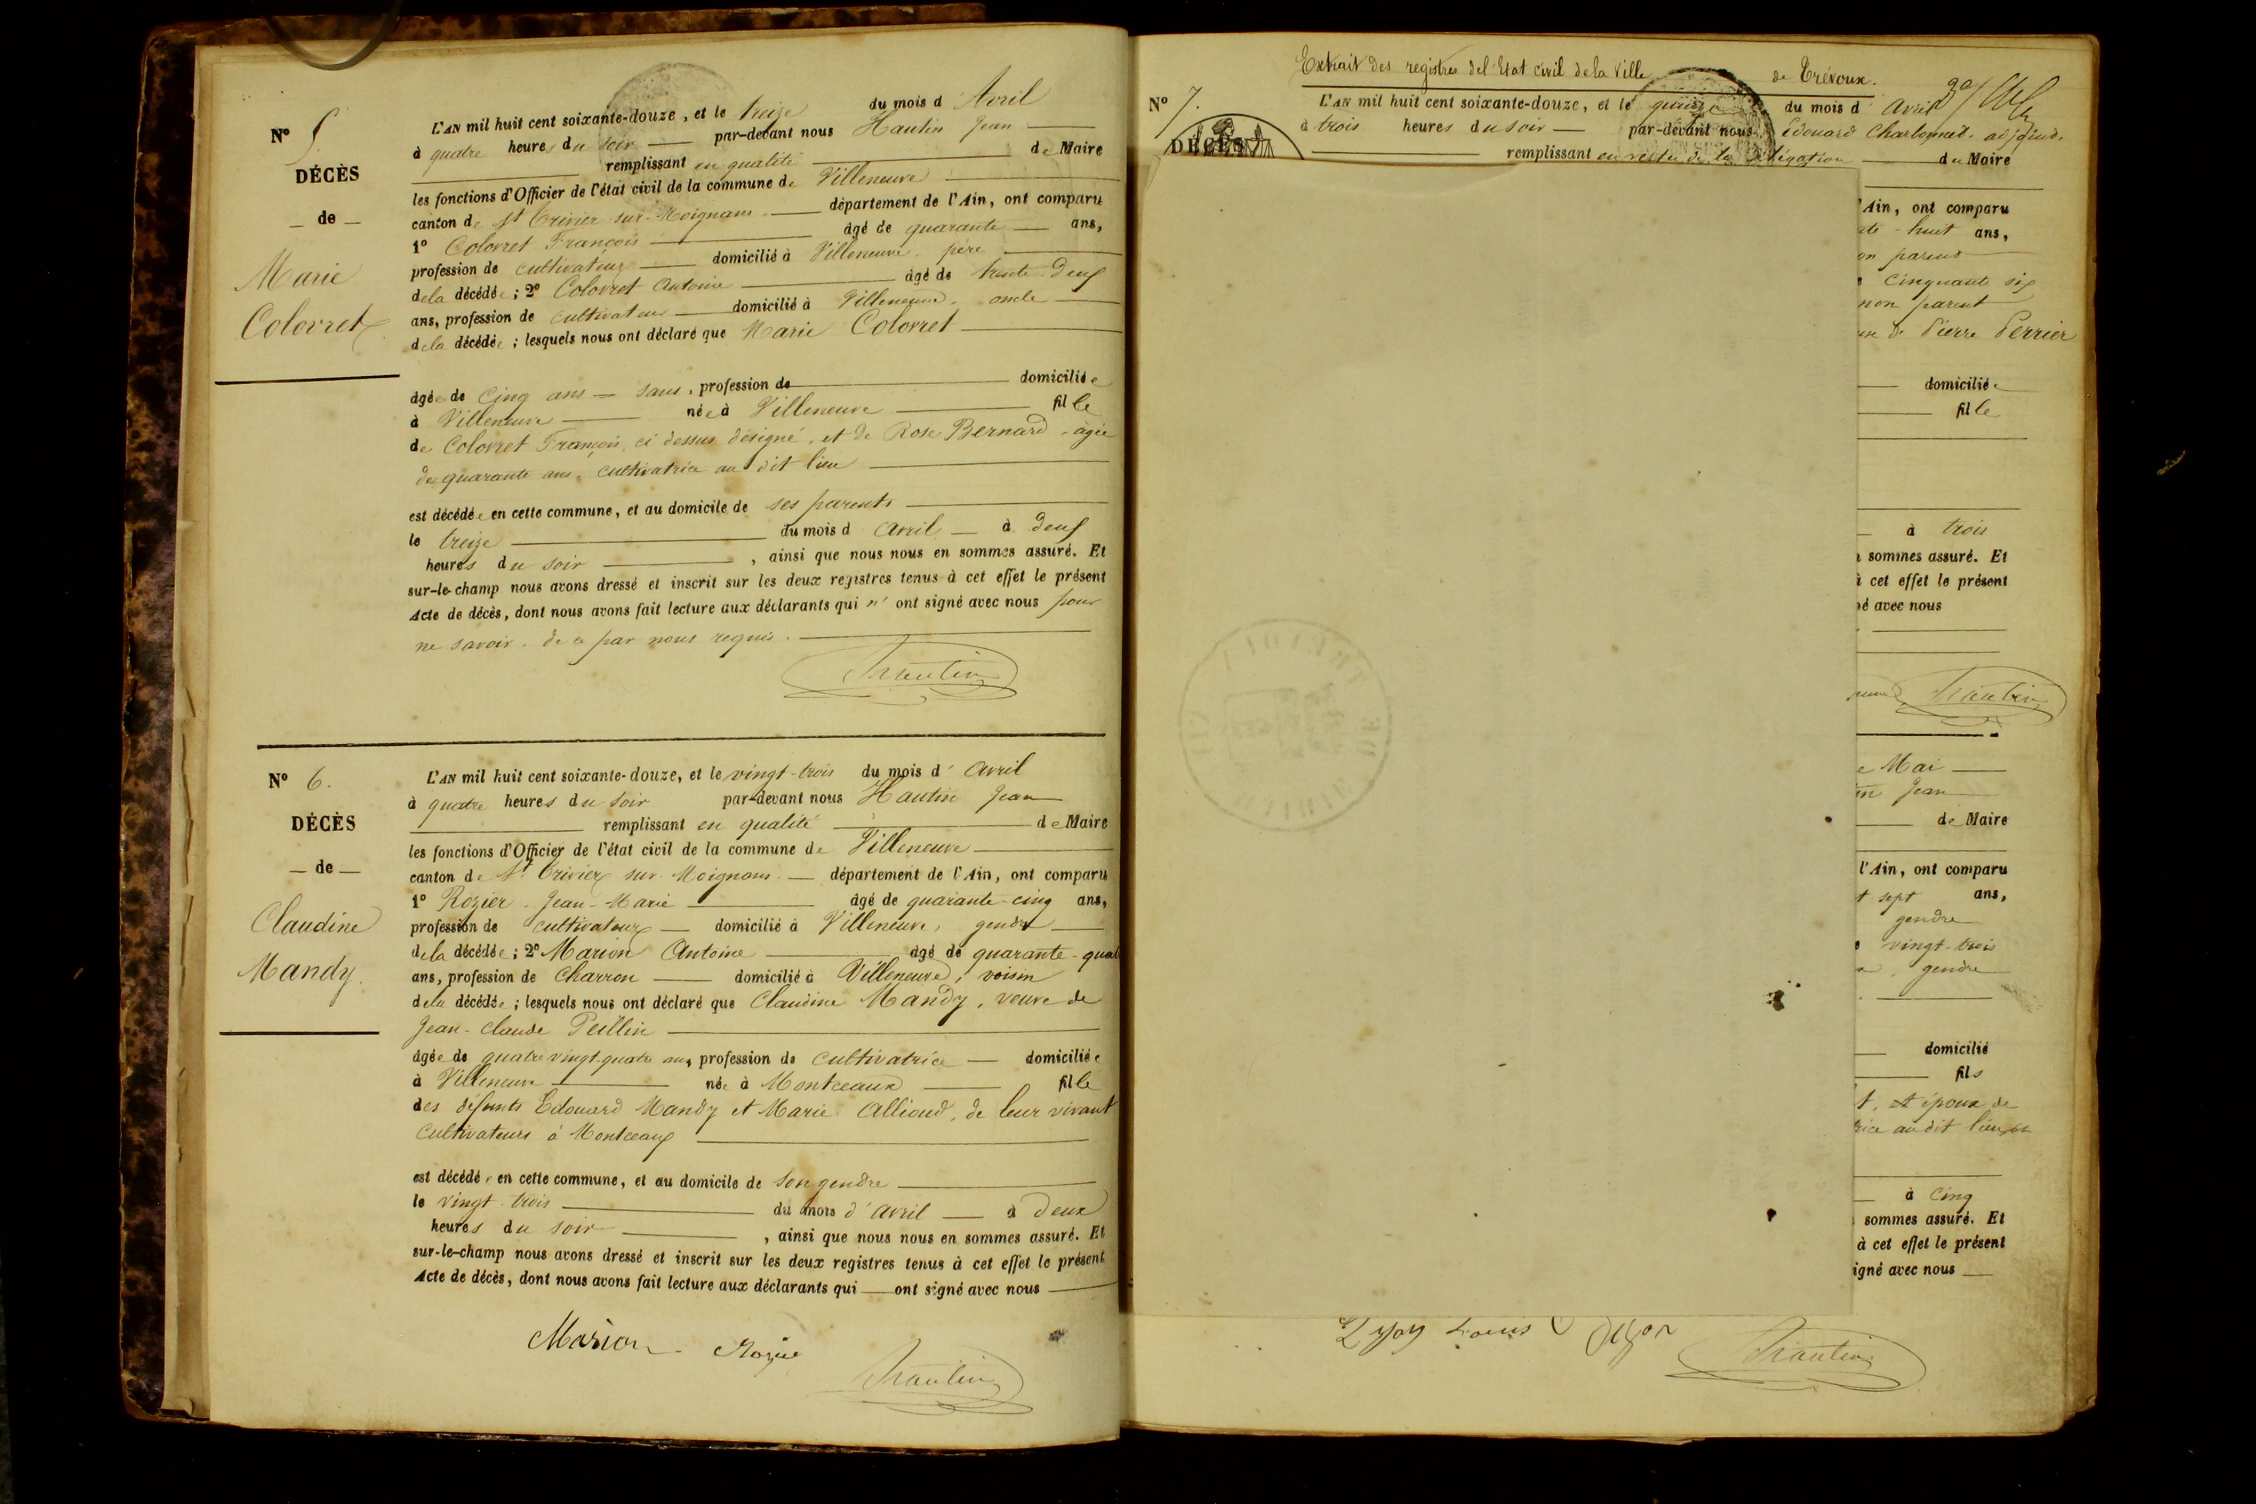 N° 5.
DÉCÈS
— de —
Marie
Colovret
L'AN mil huit cent soixante-douze, et le treize du mois d'Avril
à quatre heures du soir par-devant nous Hautin Jean
remplissant en qualité de Maire
les fonctions d'Officier de l'état civil de la commune de Villeneuve
canton de St Trivier sur Moignans département de l'Ain, ont comparu
1° Colovret François âgé de quarante ans,
profession de cultivateur domicilié à Villeneuve, père
de la décédée; 2° Colovret Antoine âgé de trente deux
ans, profession de cultivateur domicilié à Villeneuve, oncle
de la décédée; lesquels nous ont déclaré que Marie Colovret
âgée de cinq ans — sans, profession de domiciliée
à Villeneuve née à Villeneuve fille
de Colovret François, ci dessus désigné, et de Rose Bernard, âgée
de quarante ans, cultivatrice au dit lieu
est décédée en cette commune, et au domicile de ses parents
le treize du mois d avril à deux
heures du soir, ainsi que nous nous en sommes assuré. Et
sur-le-champ nous avons dressé et inscrit sur les deux registres tenus à cet effet le présent
Acte de décès, dont nous avons fait lecture aux déclarants qui n'ont signé avec nous pour
ne savoir, de ce par nous requis.
Hautin
N° 6.
DÉCÈS
— de —
Claudine
Mandy.
L'AN mil huit cent soixante-douze, et le vingt-trois du mois d'avril
à quatre heures du soir par-devant nous Hautin Jean
remplissant en qualité de Maire
les fonctions d'Officier de l'état civil de la commune de Villeneuve
canton de St Trivier sur Moignans département de l'Ain, ont comparu
1° Rozier Jean-Marie âgé de quarante-cinq ans,
profession de cultivateur domicilié à Villeneuve, gendre
de la décédée; 2° Marion Antoine âgé de quarante-quat
ans, profession de charron domicilié à Villeneuve, voisin
de la décédée; lesquels nous ont déclaré que Claudine Mandy, veuve de
Jean-Claude Peillin
âgée de quatre vingt-quatre ans, profession de cultivatrice domiciliée
à Villeneuve née à Montceaux fille
des défunts Edouard Mandy et Marie Allioud, de leur vivant
cultivateurs à Montceaux
est décédée en cette commune, et au domicile de son gendre
le vingt-trois du mois d'avril à deux
heures du soir, ainsi que nous nous en sommes assuré. Et
sur-le-champ nous avons dressé et inscrit sur les deux registres tenus à cet effet le présent
Acte de décès, dont nous avons fait lecture aux déclarants qui ont signé avec nous
Marion Rozier
Hautin
Extrait des registres de l'Etat civil de la Ville de Trévoux.
N° 7.
DÉCÈS
L'AN mil huit cent soixante-douze, et le quinze du mois d avril
à trois heures du soir par-devant nous Edouard Charbonnet, adjoint
remplissant en vertu de la délégation du Maire
'Ain, ont comparu
te-huit ans,
on parent
cinquante six
non parent
de Pierre Perrier
domiciliée
fille
à trois
sommes assuré. Et
à cet effet le présent
é avec nous
Hautin
e Mai
in Jean
de Maire
l'Ain, ont comparu
t sept ans,
gendre
vingt-trois
gendre
domicilié
fils
t, et époux de
rice au dit lieu
à cinq
sommes assuré. Et
à cet effet le présent
igné avec nous
Louis
Hautin